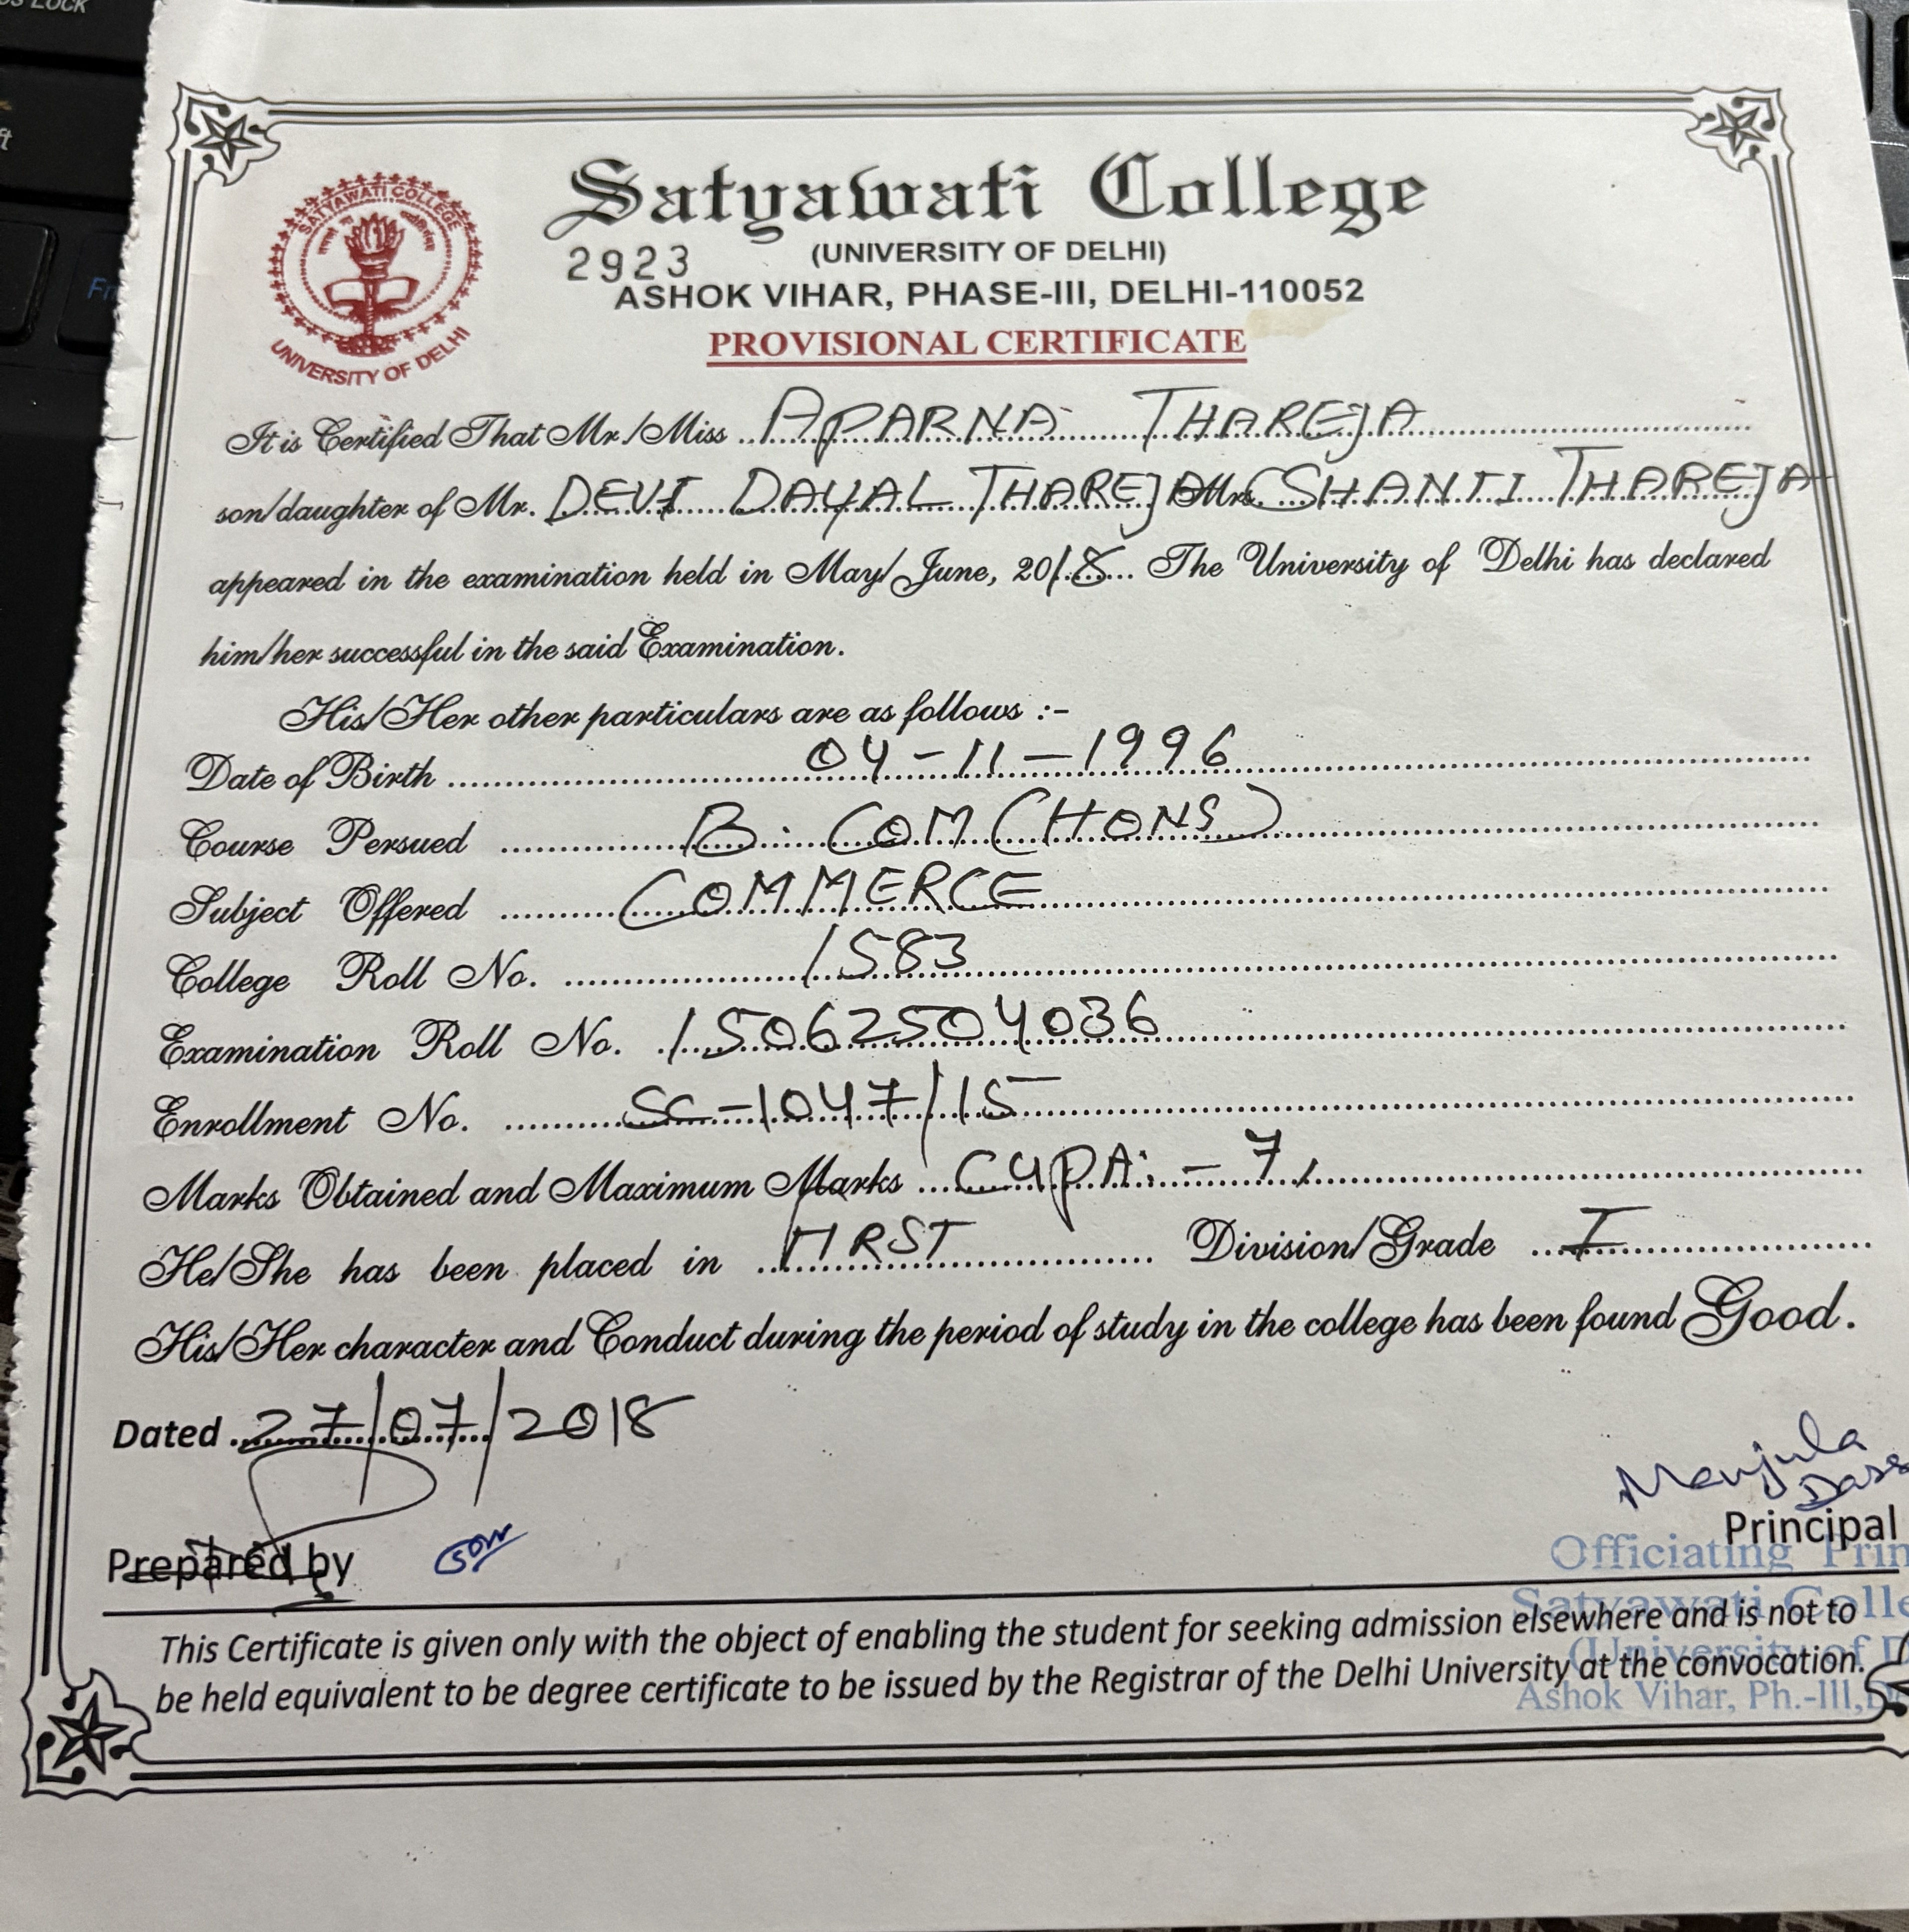 SATYAWATI COLLEGE
UNIVERSITY OF DELHI
Satyawati College
2923
(UNIVERSITY OF DELHI)
ASHOK VIHAR, PHASE-III, DELHI-110052
PROVISIONAL CERTIFICATE
It is Certified That Mr./Miss APARNA THAREJA
son/daughter of Mr. DEVI DAYAL THAREJA Mrs. SHANTI THAREJA
appeared in the examination held in May/June, 2018 The University of Delhi has declared
him/her successful in the said Examination.
His/Her other particulars are as follows :-
Date of Birth 04-11-1996
Course Persued B. COM (HONS)
Subject Offered COMMERCE
College Roll No. 1583
Examination Roll No. 15062504036
Enrollment No. SC-1047/15
Marks Obtained and Maximum Marks CGPA: - 7
He/She has been placed in FIRST Division/Grade I
His/Her character and Conduct during the period of study in the college has been found Good.
Dated 27/07/2018
Manjula
Dass
Principal
Prepared by
Officiating Prin
Satyawati Colle
(University of D
Ashok Vihar, Ph.-III, D
This Certificate is given only with the object of enabling the student for seeking admission elsewhere and is not to
be held equivalent to be degree certificate to be issued by the Registrar of the Delhi University at the convocation.